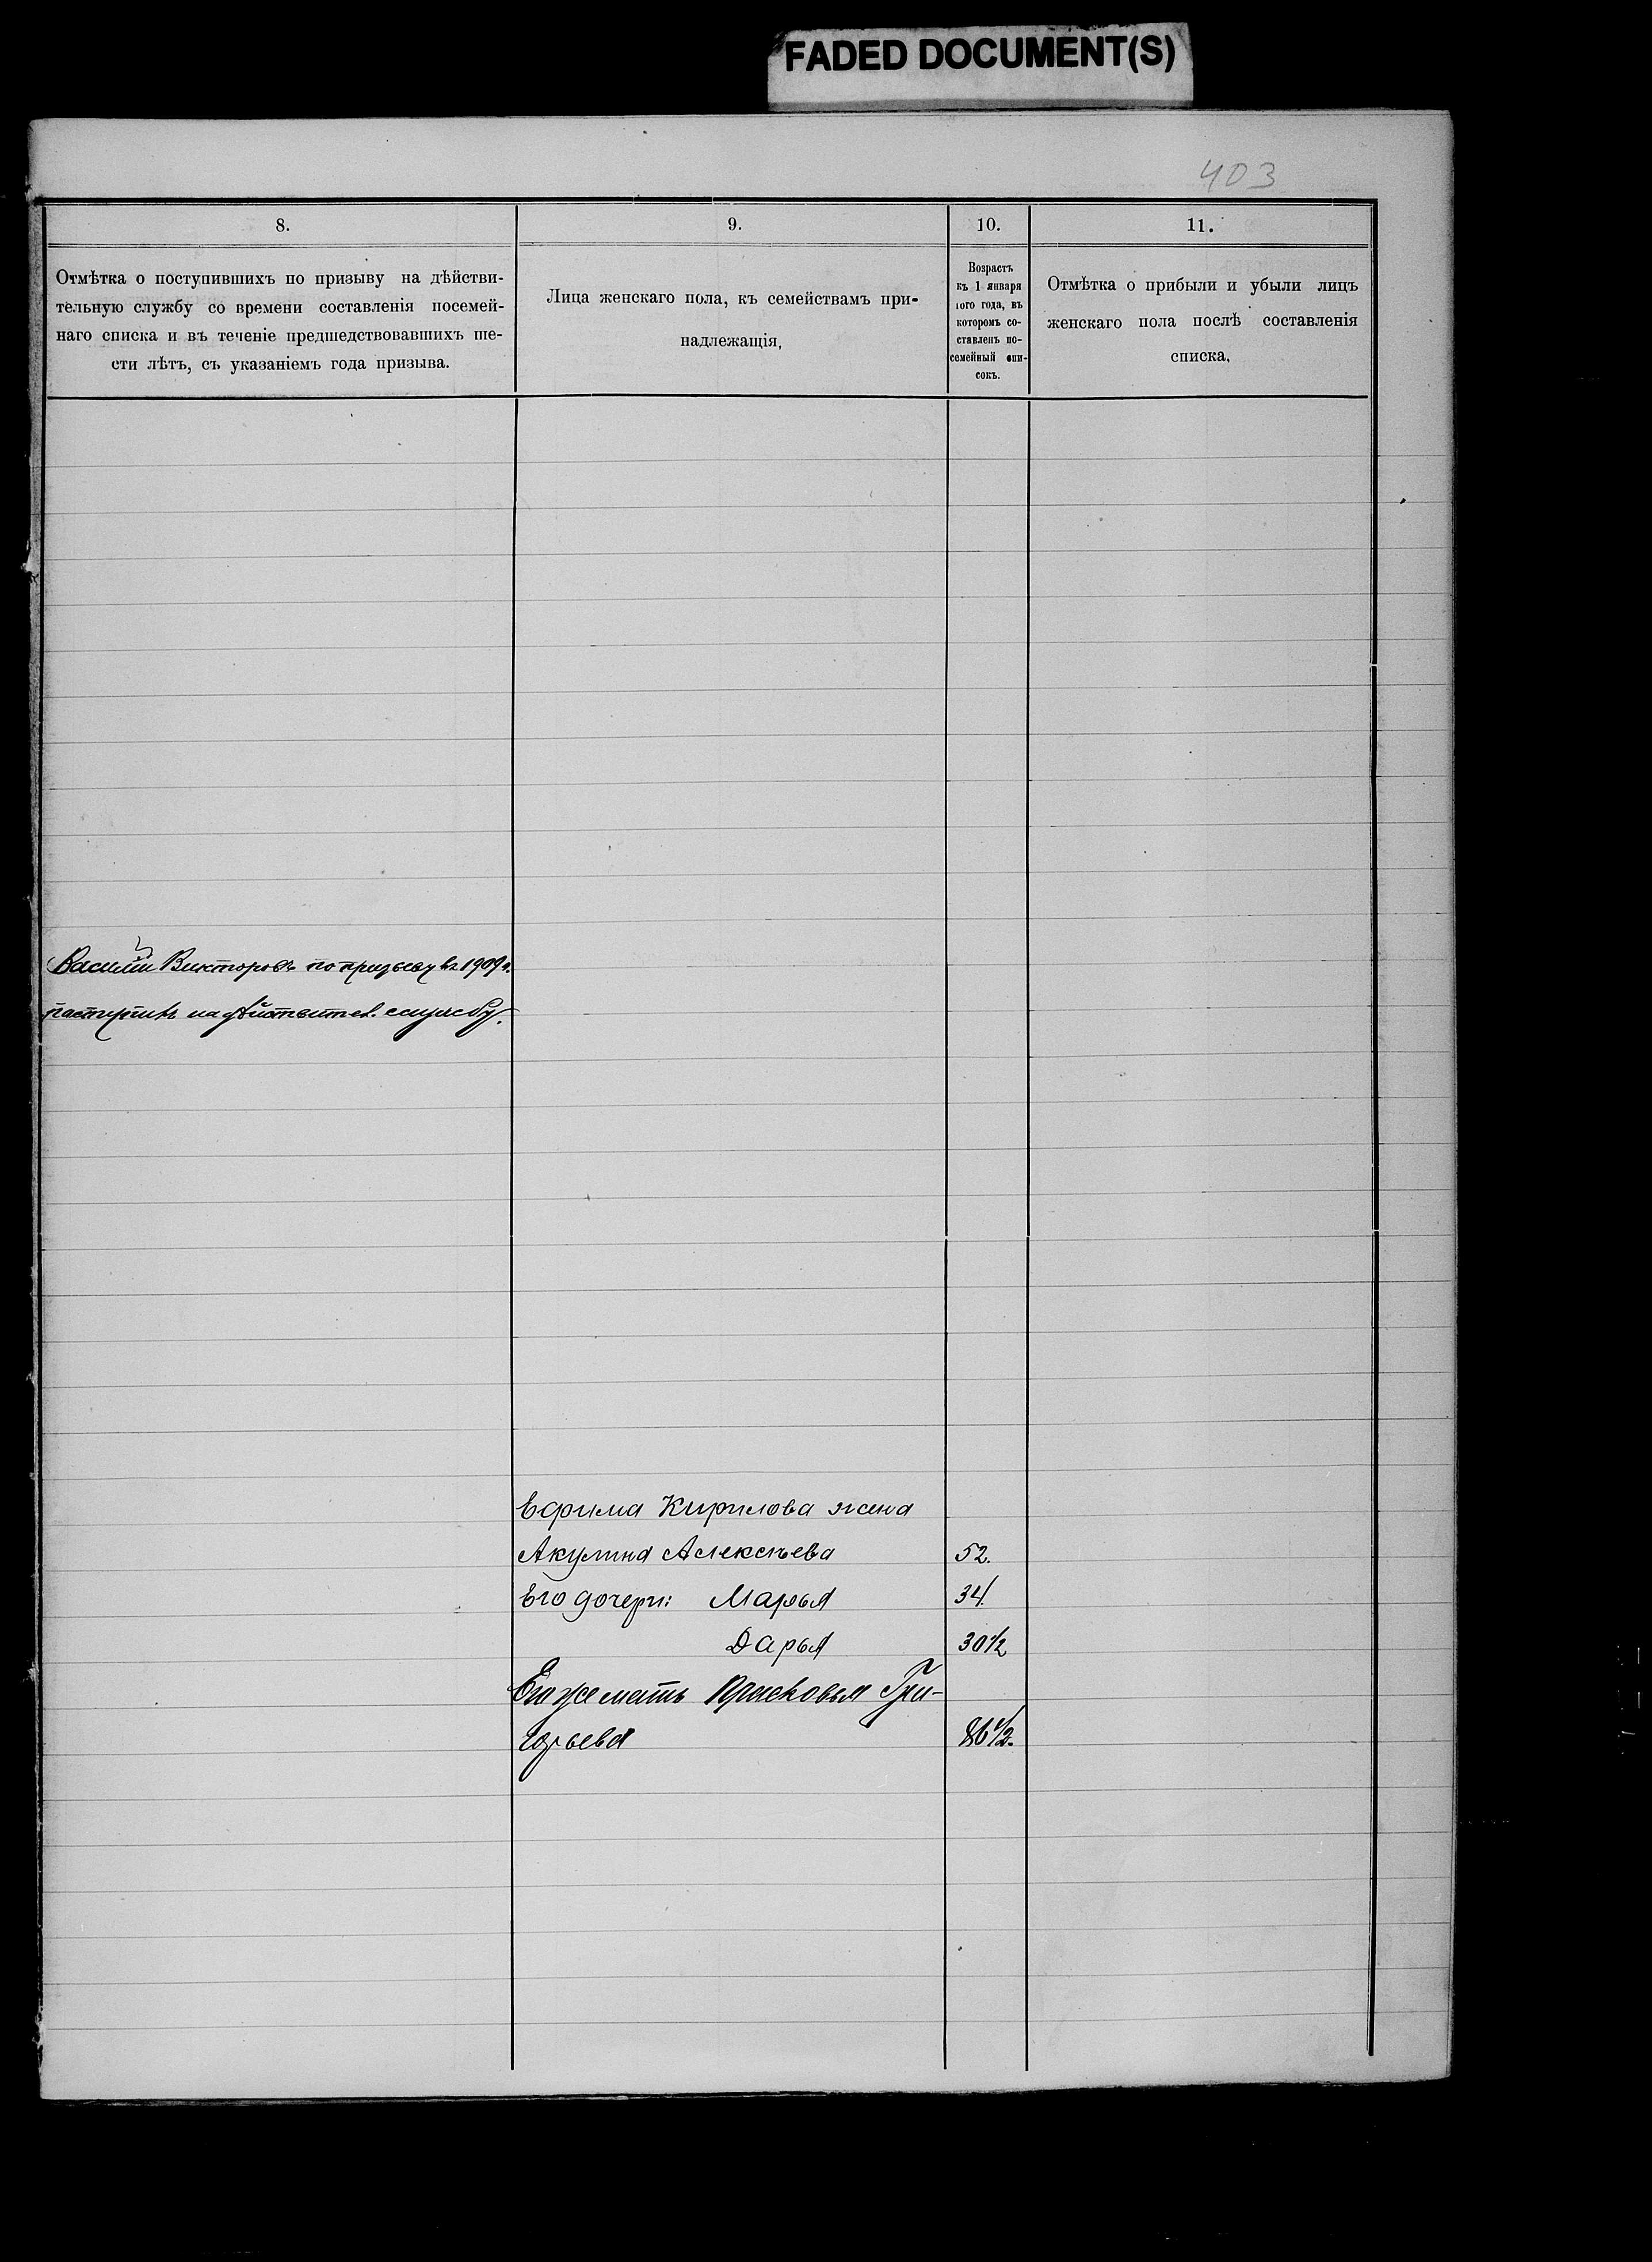 FADED DOCUMENT(S)
403
8.
9.
10.
11.
Отмѣтка о поступившихъ по призыву на дѣйстви-
тельную службу со времени составленія посемей-
наго списка и въ теченіе предшедствовавшихъ ше-
сти лѣтъ, съ указаніемъ года призыва.
Лица женскаго пола, къ семействамъ при-
надлежащія,
Возрастъ
къ 1 января
того года, въ
которомъ со-
ставленъ по-
семейный спи-
сокъ.
Отмѣтка о прибыли и убыли лицъ
женскаго пола послѣ составленія
списка.
Василій Викторовъ по призыву въ 1909 г.
поступилъ на дѣйствител. службу.
Ефима Кирилова жена
Акулина Алексѣева 52.
Его дочери: Марья 34.
Дарья 30½
Его же мать Прасковья Гри-
горьева 86½.